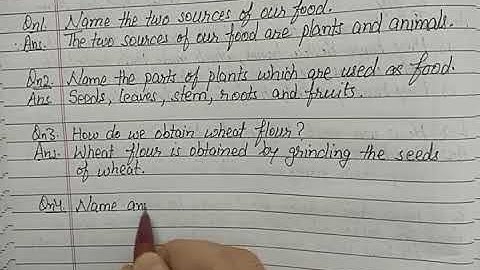 Qn1. Name the two sources of our food.
Ans. The two sources of our food are plants and animals.
Qn2. Name the parts of plants which are used as food.
Ans. Seeds, leaves, stem, roots and fruits.
Qn3. How do we obtain wheat flour?
Ans. Wheat flour is obtained by grinding the seeds
of wheat.
Qn4. Name an